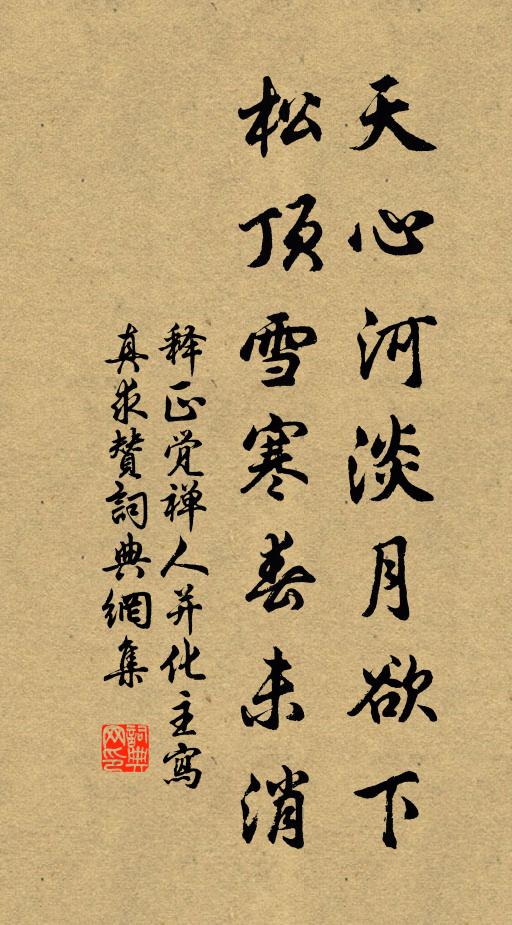 天心河淡月欲下
松顶雪寒春未消
释正觉禅人并化主寫
真求赞詞典網集
詞典
网印